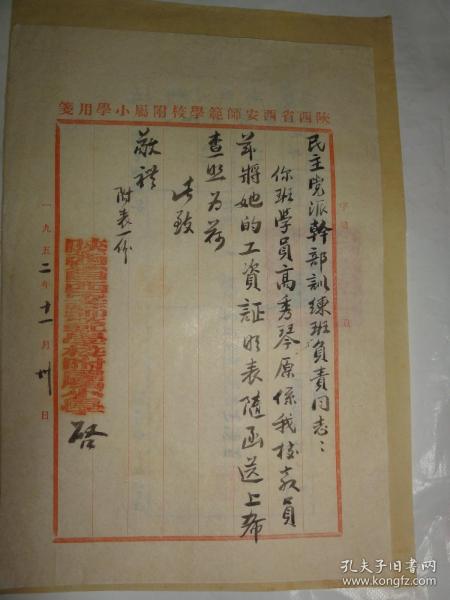 陝西省西安師範學校附屬小學用箋
民主党派幹部訓練班負責同志：
你班學員高秀琴原係我校教員
茲將她的工資証明表隨函送上希
查照为荷
此致
敬禮
附表一份
陝西省西安師範學校附屬小學 啓
一九五二年十一月卅日
孔夫子旧书网
www.kongfz.com